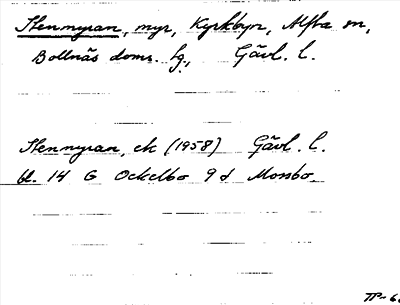 Stenmyran, myr, Kyrkbyn, Alfta sn,
Bollnäs doms. hg., Gävl. l.
Stenmyran, ek (1958) Gävl. l.
bl. 14 G Ockelbo 9 d Mossbo.